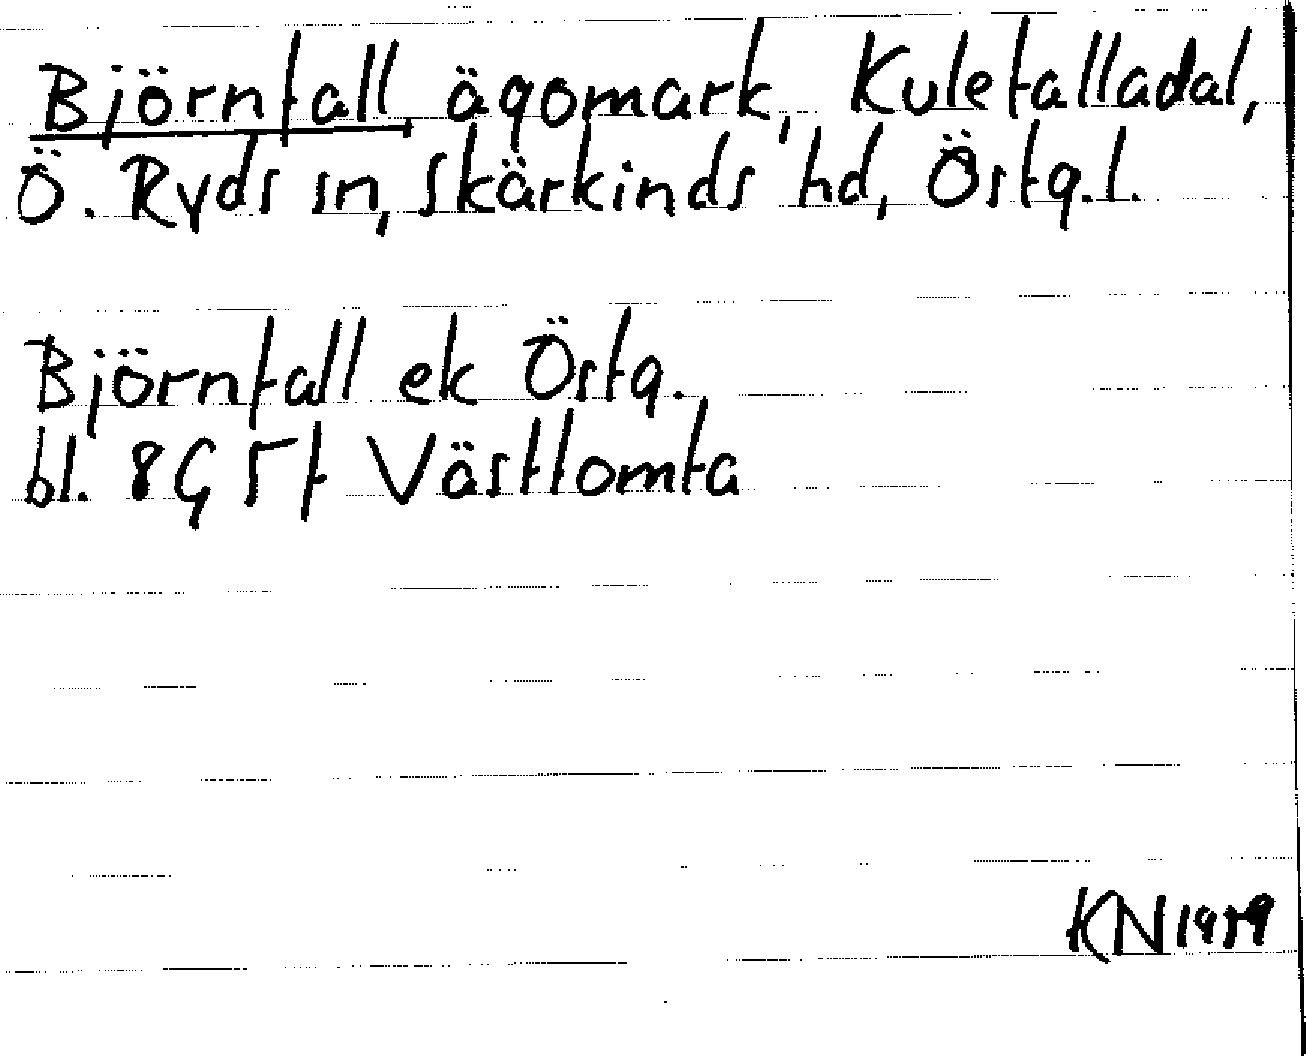 Björnfall, ägomark, Kuletalladal,
Ö. Ryds sn, Skärkinds hd, Östg.l.
Björnfall ek Östg.,
bl. 8G 5f Västtomta
KN 1959